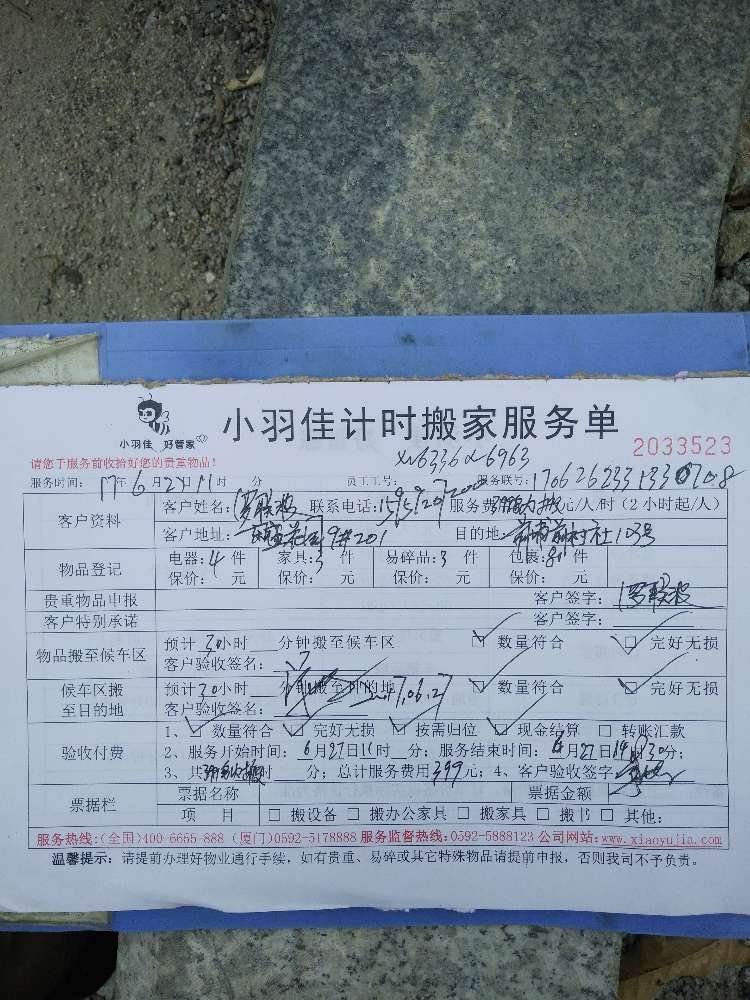 小羽佳 好管家
小羽佳计时搬家服务单
XN6336 6963
2033523
请您于服务前收拾好您的贵重物品!
服务时间: 17年 6月 27日 11时 分 员工工号: 服务联号:
客户资料 客户姓名: 罗联波 联系电话: 服务费 元/人/时(2小时起/人)
客户地址: 9#201 目的地: 前村社103号
物品登记 电器: 4 件 家具: 3 件 易碎品: 3 件 包裹: 件
保价: 元 保价: 元 保价: 元 保价: 元
贵重物品申报 客户签字: 罗联波
客户特别承诺 客户签字:
物品搬至候车区 预计 30小时 分钟搬至候车区 ☑ 数量符合 ☑ 完好无损
客户验收签名:
候车区搬至目的地 预计30小时 分钟搬至目的地 ☑ 数量符合 ☑ 完好无损
客户验收签名: 17.06.27
验收付费 1、☑ 数量符合 ☑ 完好无损 ☑ 按需归位 ☑ 现金结算 □ 转账汇款
2、服务开始时间: 6月27日11时 分; 服务结束时间: 6月27日14时30分;
3、共 时 分; 总计服务费用399元; 4、客户验收签字:
票据栏 票据名称 票据金额
项 目 □ 搬设备 □ 搬办公家具 □ 搬家具 □ 搬 □ 其他:
服务热线:(全国)400-6655-888 (厦门)0592-5178888 服务监督热线:0592-5888123 公司网站:www.xiaoyujia.com
温馨提示: 请提前办理好物业通行手续, 如有贵重、易碎或其它特殊物品请提前申报, 否则我司不予负责。